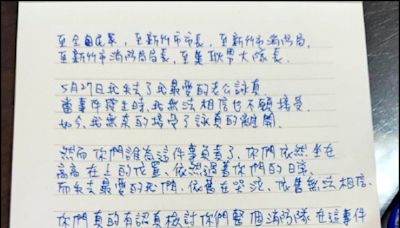 至全國民眾,至新竹市市長,至新竹市消防局,
至新竹市消防局局長,至隻耿男大隊長.
5月27日我失去了我最愛的老公詠真
當事件發生時,我無法相信也不願接受.
如今,我無奈的接受了詠真的離開.
然而你們誰為這件事負責了,你們依然坐在
高高在上的位置,依然過著你們的日常.
而失去最愛的我們,依舊在哭泣,依舊無法相信.
你們真的有認真檢討你們整個消防隊在這事件